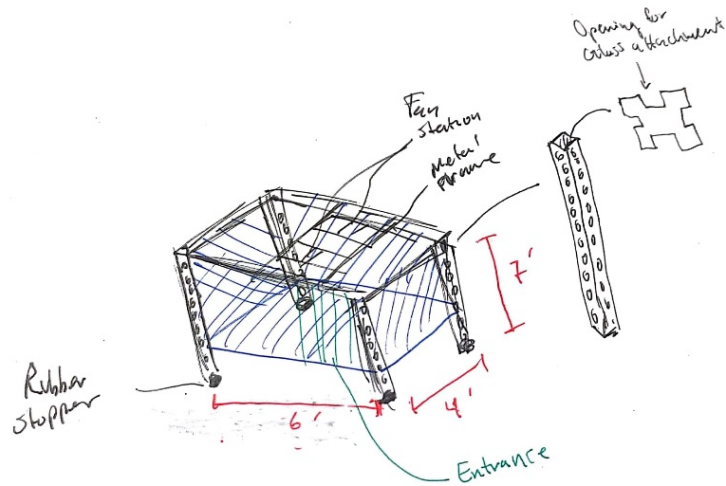 Opening for
Glass attachment
Fan
station
Metal
frame
7'
Rubber
stopper
6'
4'
Entrance